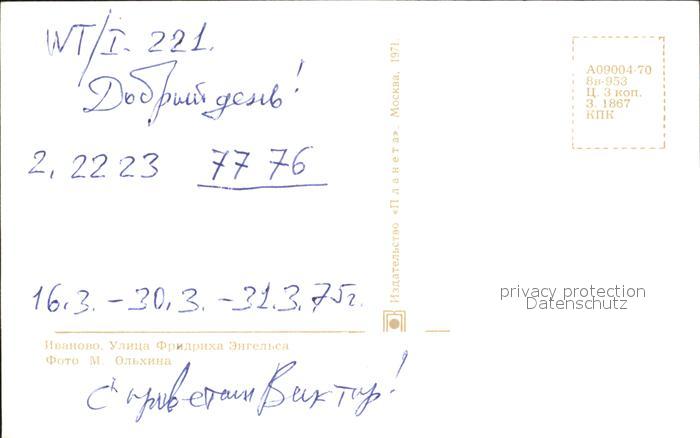 WT/I- 221.
Добрый день!
2, 22 23 77 76
16.3. - 30.3. - 31.3.75г.
Иваново. Улица Фридриха Энгельса
Фото М. Ольхина
С приветом Виктор!
Издательство «Планета». Москва. 1971.
А09004-70
8в-953
Ц. 3 коп.
З. 1867
КПК
privacy protection
Datenschutz